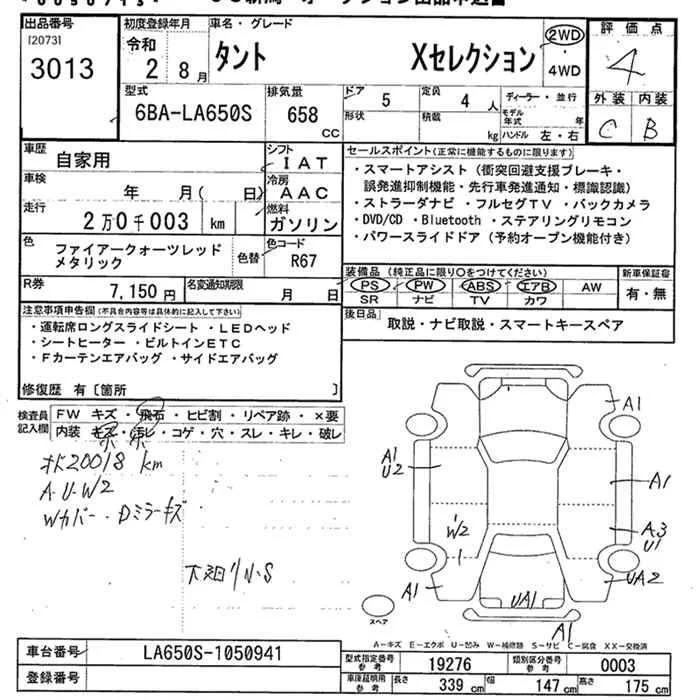 出品番号
[2073]
3013
初度登録年月
令和
2 8月
車名・グレード
タント Xセレクション
2WD
・
4WD
評価点
4
外装 内装
C B
型式
6BA-LA650S
排気量
658
CC
ドア
5
定員
4 人
形状
積載
kg
ディーラー・並行
モデル年式 年
ハンドル 左・右
車歴
自家用
シフト
IAT
車検
年 月( 日)
冷房
AAC
走行
2万0千003 km
燃料
ガソリン
色
ファイアークォーツレッド
メタリック
色替
色コード
R67
R券
7,150円
名変通知期限
月 日
セールスポイント(正常に機能するものに限ります)
・スマートアシスト(衝突回避支援ブレーキ・
誤発進抑制機能・先行車発進通知・標識認識)
・ストラーダナビ・フルセグTV・バックカメラ
・DVD/CD・Bluetooth・ステアリングリモコン
・パワースライドドア(予約オープン機能付き)
装備品(純正品に限り○をつけてください)
PS PW ABS エアB AW
SR ナビ TV カワ
新車保証書
有・無
後日品
取説・ナビ取説・スマートキースペア
注意事項申告欄(不具合内容等は具体的に記入して下さい)
・運転席ロングスライドシート・LEDヘッド
・シートヒーター・ビルトインETC
・Fカーテンエアバッグ・サイドエアバッグ
修復歴 有〔箇所 〕
検査員
記入欄
FW キズ・飛石・ヒビ割・リペア跡・×要
内装 キズ・汚レ・コゲ・穴・スレ・キレ・破レ
20018 km
A・U・W2
Wカバー・Dミラーキズ
A1
A1
U2
A1
W2
A3
U1
A1
UA2
UA1
A1
スペア
A-キズ E-エクボ U-凹み W-補修跡 S-サビ C-腐食 XX-交換済
車台番号
LA650S-1050941
登録番号
型式指定番号
参考
19276
類別区分番号
参考
0003
車庫証明用
参考
長さ
339 cm
幅
147 cm
高さ
175 cm